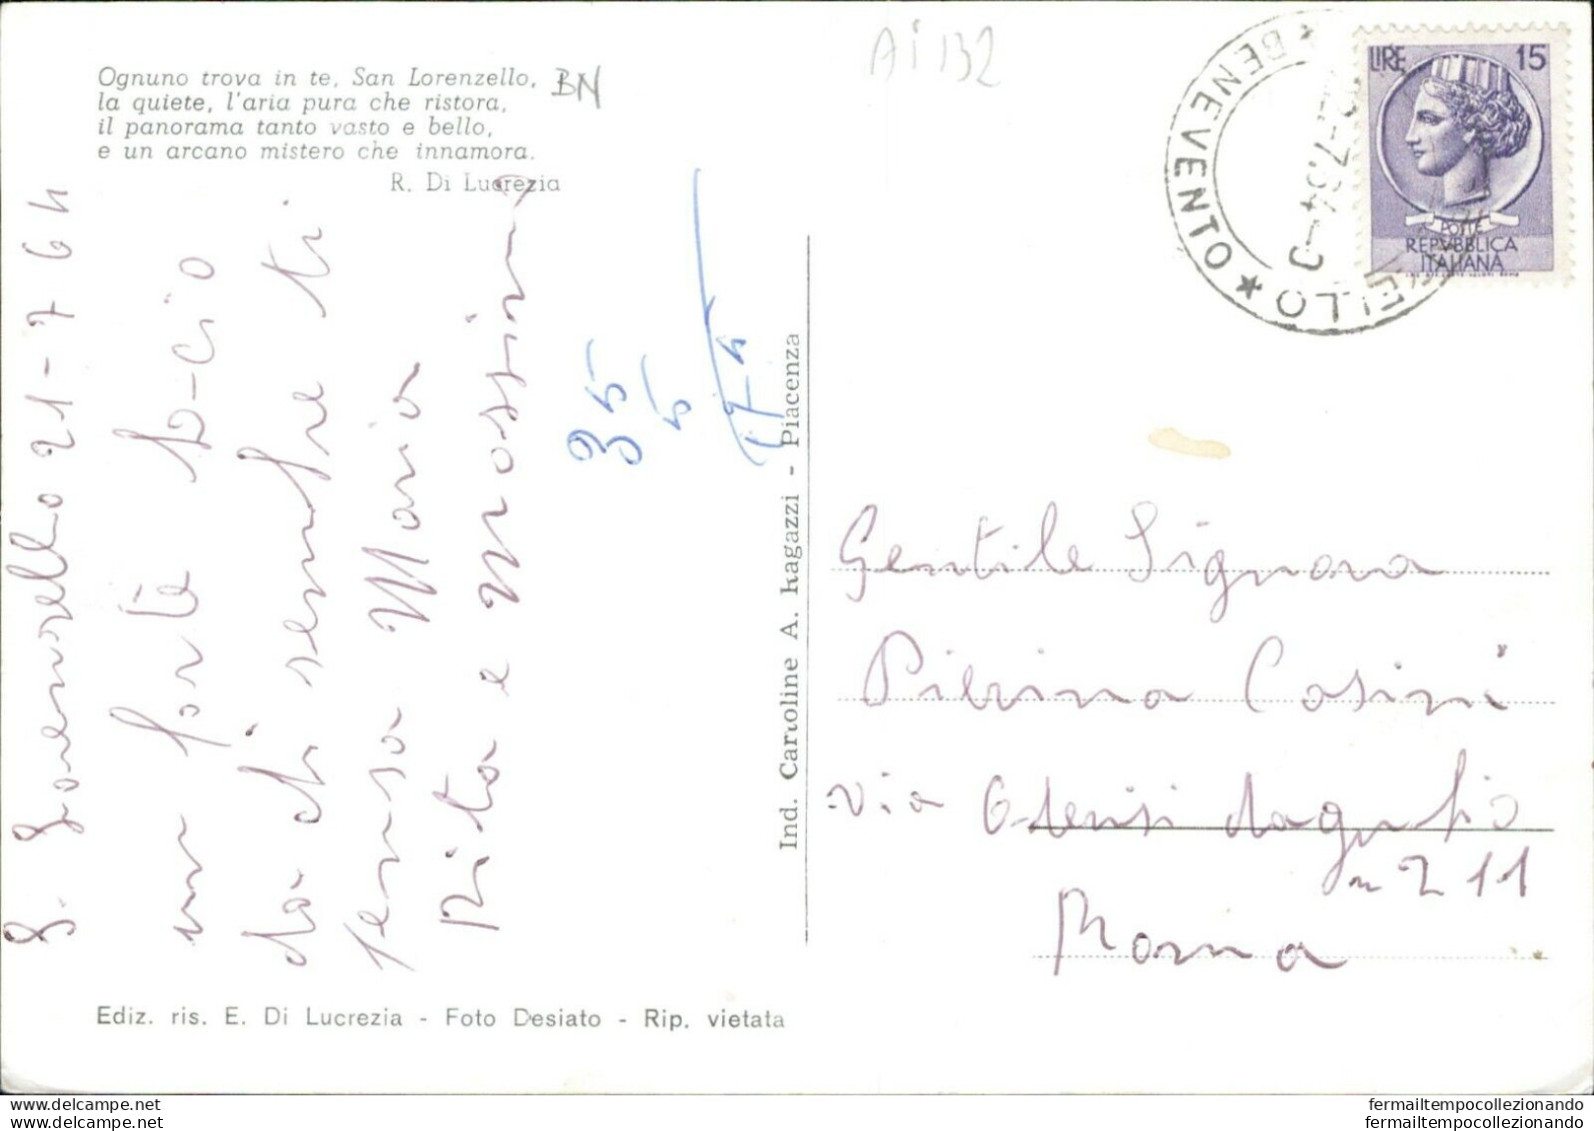 Ognuno trova in te, San Lorenzello,
la quiete, l'aria pura che ristora,
il panorama tanto vasto e bello,
e un arcano mistero che innamora.
R. Di Lucrezia
BN
Ai 132
BENEVENTO
ELLO
LIRE 15
POSTE
REPVBBLICA
ITALIANA
S. Lorenzello 21-7 64
un forte bacio
da chi sempre ti
pensa Maria
Rita e Massimo
35
5
174
Ind. Cartoline A. Ragazzi - Piacenza
Gentile Signora
Pierina Casini
via
n 211
Roma
Ediz. ris. E. Di Lucrezia - Foto Desiato - Rip. vietata
fermailtempocollezionando
fermailtempocollezionando
fermailtempocollezionando
fermailtempocollezionando